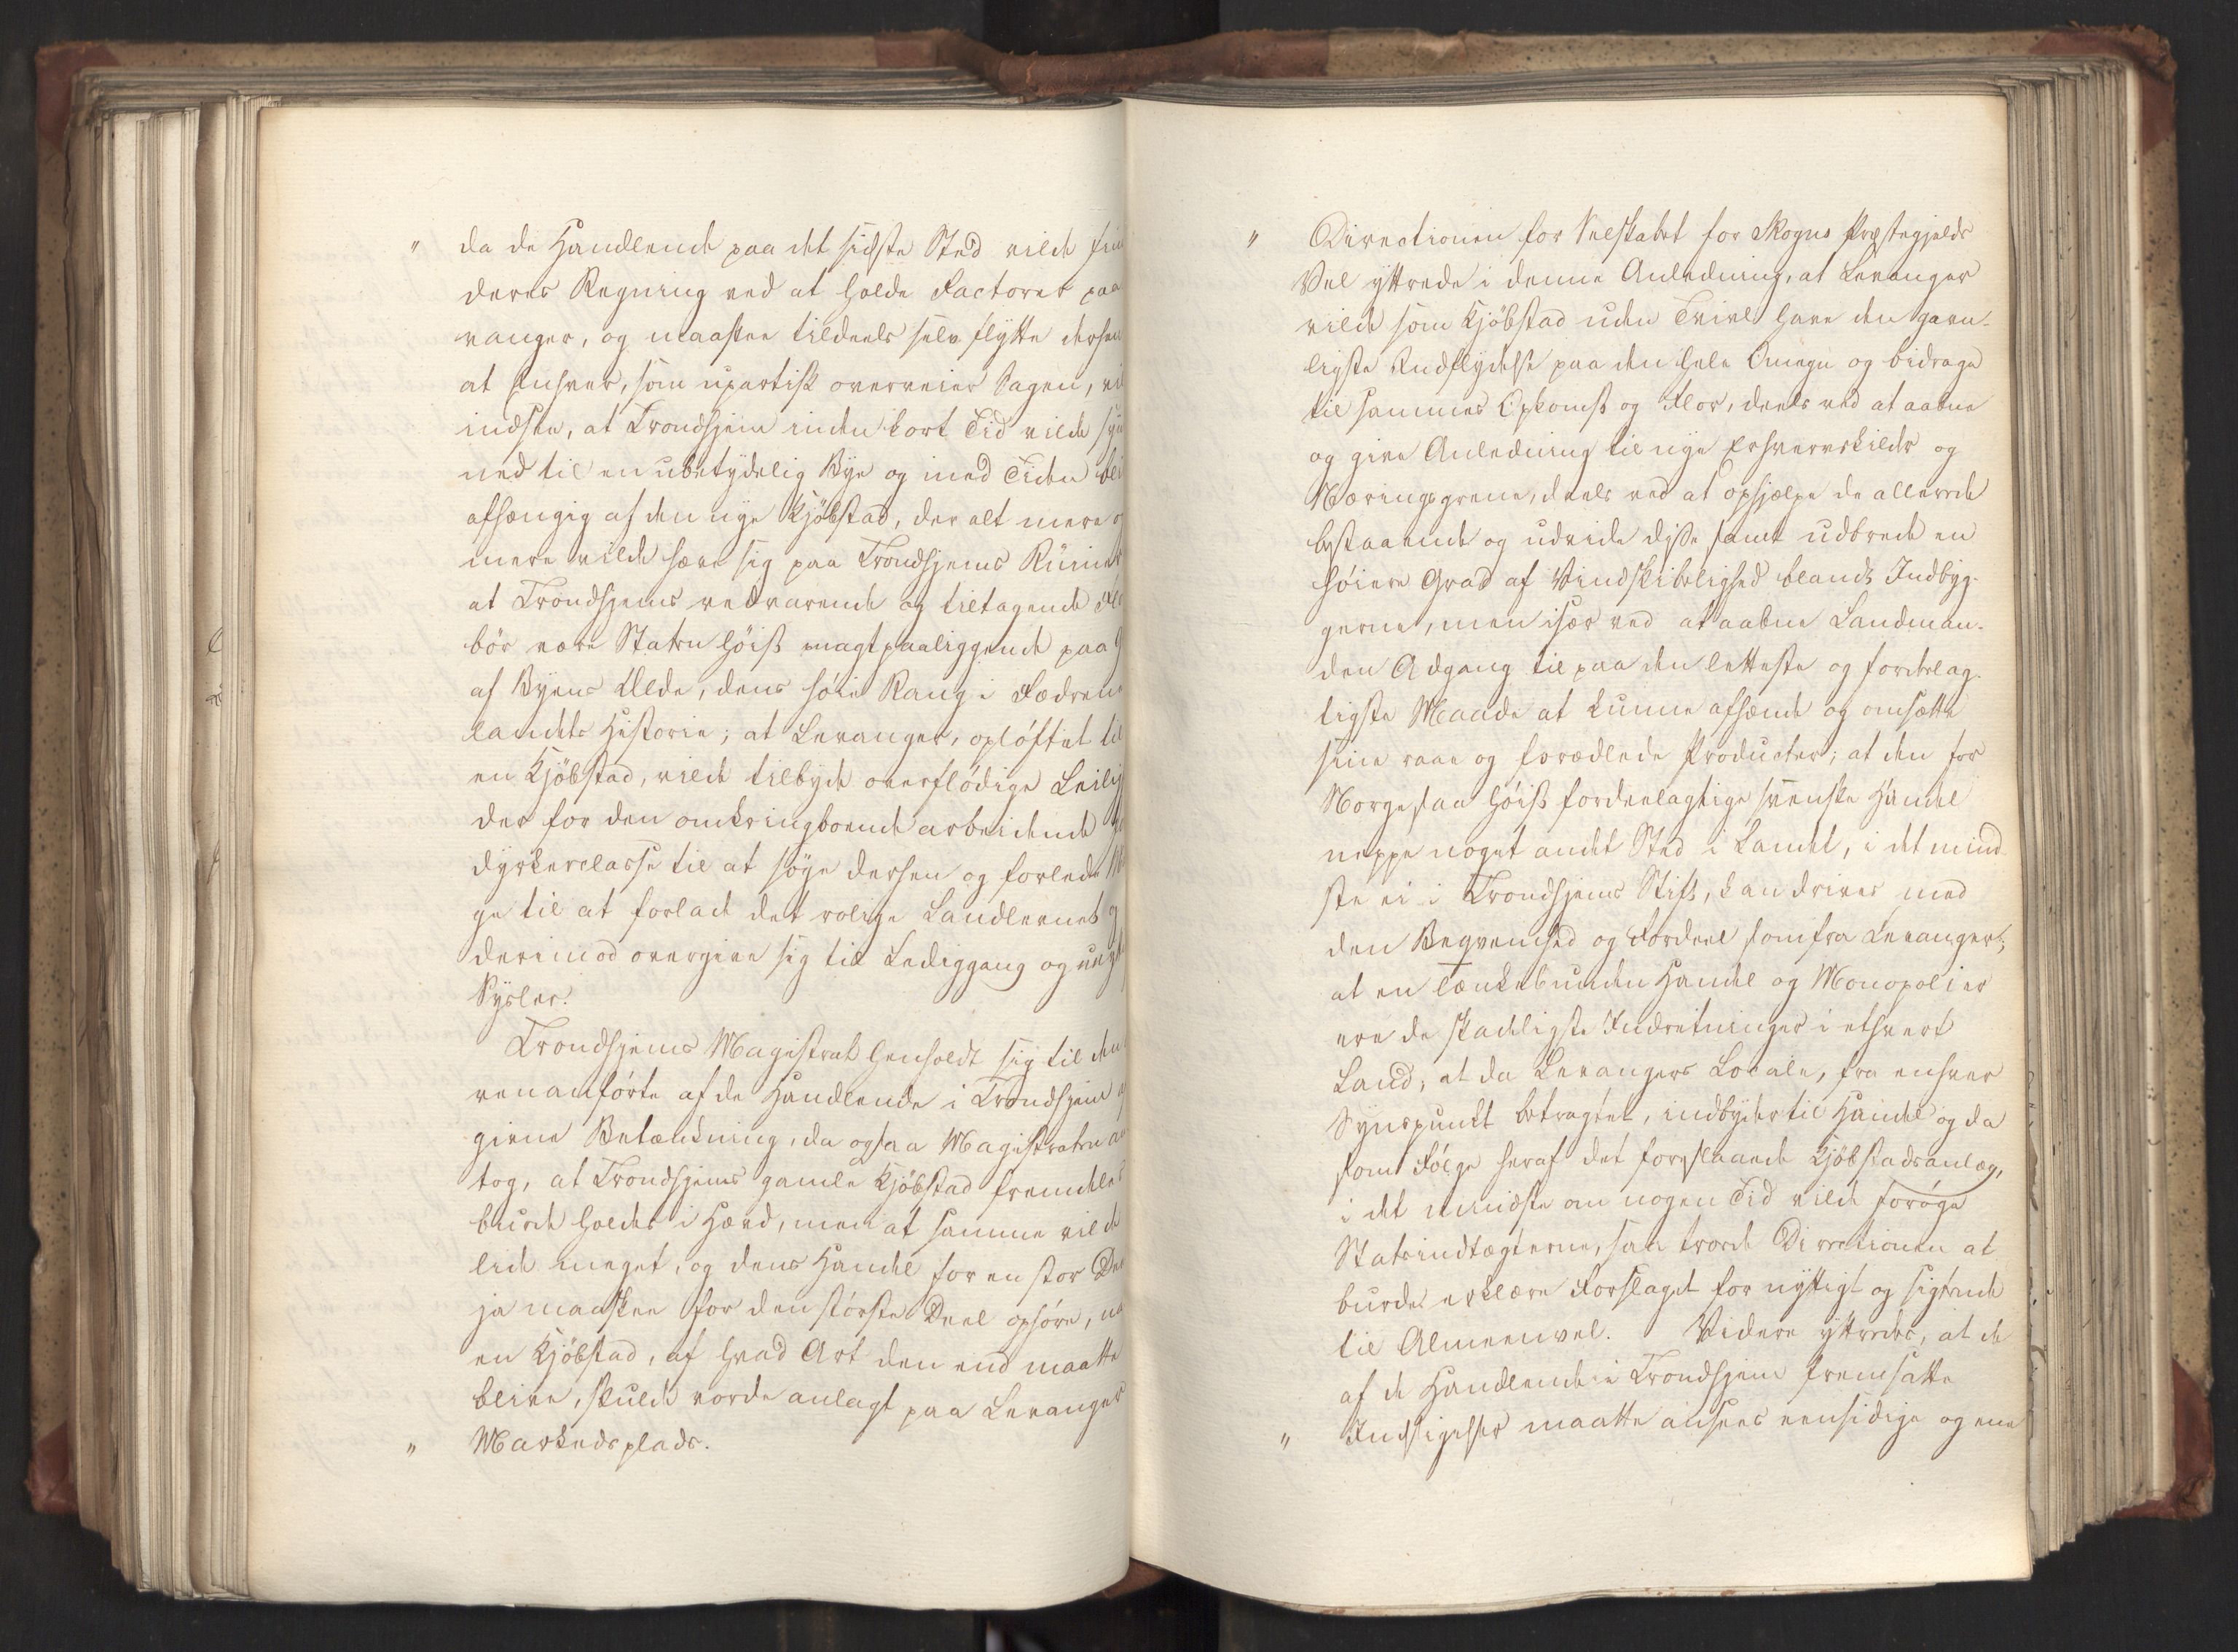 " da de Handlende paa det sidste Sted vilde
deres Regning ved at holde Factorer paa
vanger, og maaskee tildeels selv flytte derhen
at Enhver, som upartisk overveier Sagen, vil
indsee, at Trondhjem inden kort Tid vilde syn
ned til en ubetydelig Bye og med Tiden bli
afhængig af den nye Kjöbstad, der alt mere og
mere vilde hæve sig paa Trondhjems Ruiner
at Trondhjems vedvarende og tiltagende Flo
bör være Staten höist magtpaaliggende paa G
af Byens Ælde, dens höie Rang i Fædrene
landets Historie; at Levanger, oplöftet til
en Kjöbstad, vilde tilbyde overflödige Leilig
der for den omkringboende arbeidende
dyrkerclasse til at söge derhen og forlede
ge til at forlade det rolige Landlevnet og
derimod overgive sig til Lediggang og
Sysler.
Trondhjems Magistrat henholdt sig til den
venanförte af de Handlende i Trondhjem af
givne Betænkning, da ogsaa Magistraten an
tog, at Trondhjems gamle Kjöbstad fremdeles
burde holdes i Hævd, men at samme vilde
lide meget, og dens Handel for en stor Deel
ja maaskee for den störste Deel ophöre, naar
en Kjöbstad, af hvad Art den end maatte
blive, skulde vorde anlagt paa Levanger
" Markedsplads.
" Directionen for Selskabet for Skogns Præstegjelds
Vel yttrede i denne Anledning, at Levanger
vilde som Kjöbstad uden Tvivl have den gavn-
ligste Indflydelse paa den hele Omegn og bidrage
til sammes Opkomst og Flor, deels ved at aabne
og give Anledning til nye Erhvervskilder og
Næringsgrene, deels ved at ophjelpe de allerede
bestaaende og udvide disse samt udbrede en
höiere Grad af Vindskibelighed blandt Indbyg-
gerne, men især ved at aabne Landman-
den Adgang til paa den letteste og fordelag-
ligste Maade at kunne afhænde og omsætte
sine raae og forædlede Producter; at den for
Norge saa höist fordeelagtige svenske Handel
neppe noget andet Sted i Landet, i det mind-
ste ei i Trondhjems Stift, kan drives med
den Beqvemhed og Fordeel som fra Levanger;
at en lænkebunden Handel og Monopolier
ere de skadeligste Indretninger i ethvert
Land; at da Levangers Locale, fra enhver
Synspunkt betragtet, indbyder til Handel og da
som Fölge heraf det foreslaaede Kjöbstadsanlæg,
i det mindste om nogen Tid vilde foröge
Statsindtægterne, saa troede Directionen at
burde erklære Forslaget for nyttigt og sigtende
til Almeenvel. Videre yttredes, at de
af de Handlende i Trondhjem fremsatte
" Indsigelser maatte ansees eensidige og ene